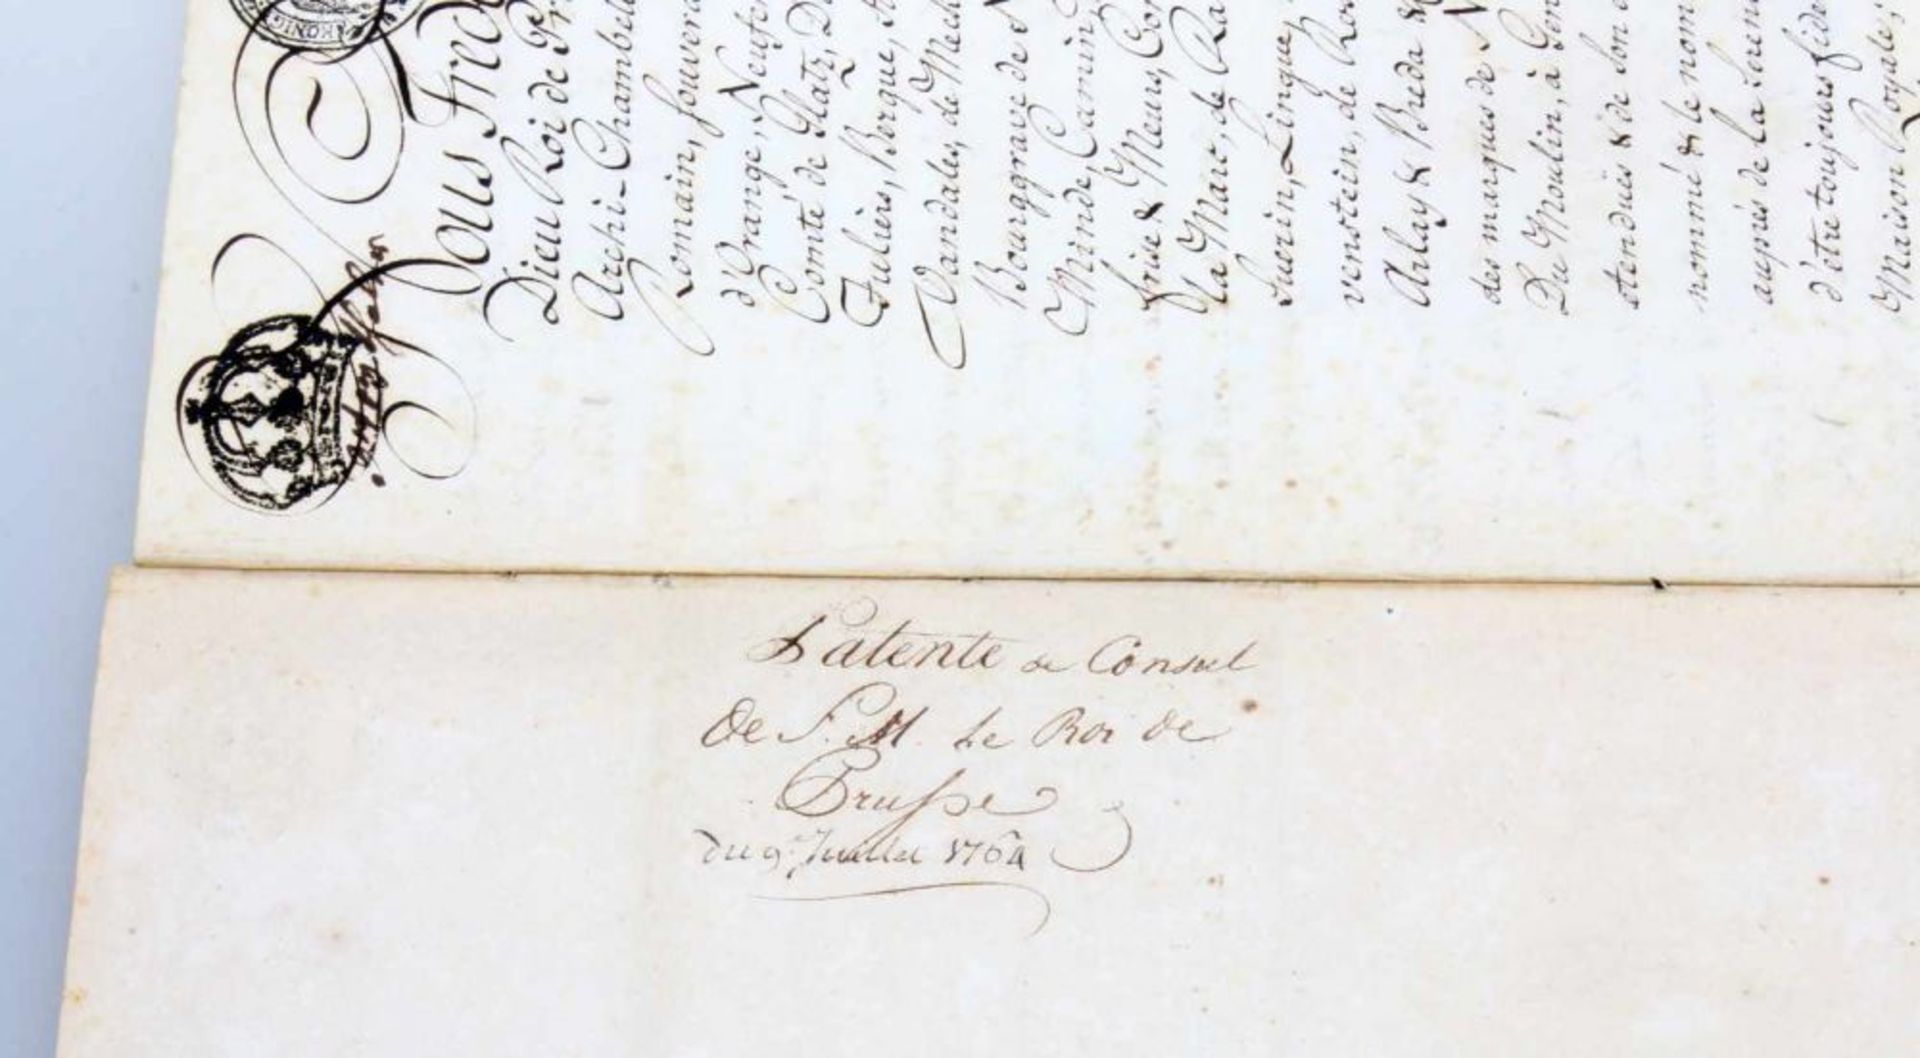 Nous Frede
Dieu Roi de Pr
Archi-Chambel
Romain, souvera
d'Orange, Neufch
Comté de Glatz, D
Juliers, Bergue, St
Vandales, de Meck
Bourggrave de N
Minde, Camin
frise & Meurs, Com
la Marc, de Ra
Buorin, Lingue,
venstein, de Ros
Arlay & Breda &
des marques de N
Du Moulin, à Gen
stenduës & de son
nommé & le nom
auprès de la Seren
d'être toujours fide
Maison Royale,
Patente de Consul
De S. M. Le Roi de
Prusse
du 9. Juillet 1764